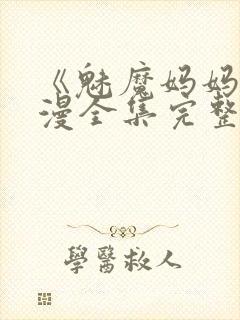 《魅魔妈妈
漫全集完整
學醫救人